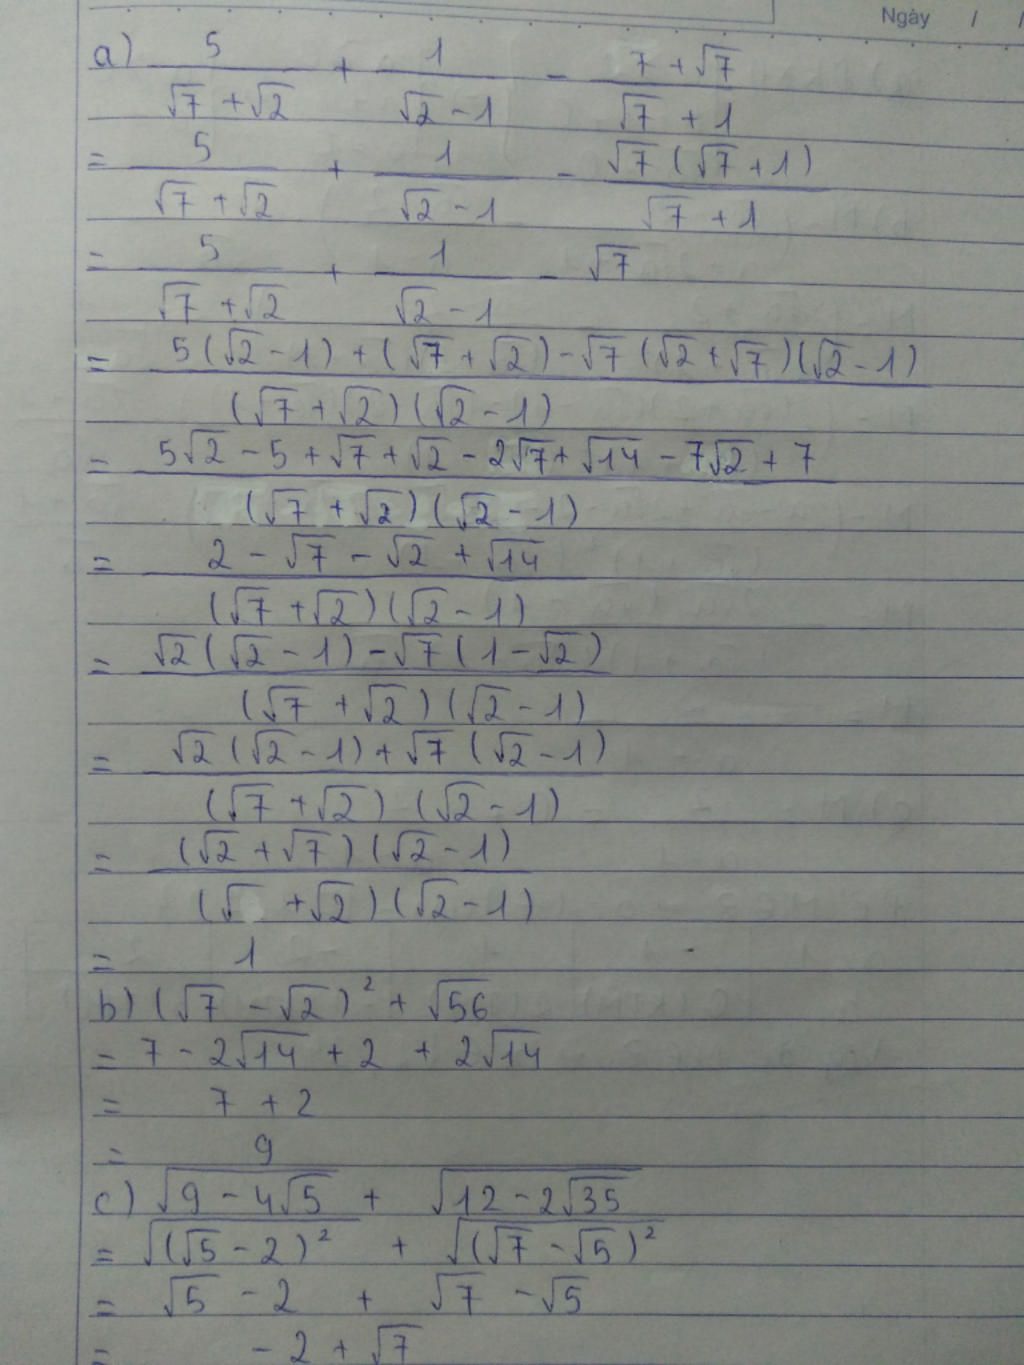 Ngày / /
a) 5/(√7 + √2) + 1/(√2 - 1) - (7 + √7)/(√7 + 1)
= 5/(√7 + √2) + 1/(√2 - 1) - √7(√7 + 1)/(√7 + 1)
= 5/(√7 + √2) + 1/(√2 - 1) - √7
= (5(√2 - 1) + (√7 + √2) - √7(√2 + √7)(√2 - 1))/((√7 + √2)(√2 - 1))
= (5√2 - 5 + √7 + √2 - 2√7 + √14 - 7√2 + 7)/((√7 + √2)(√2 - 1))
= (2 - √7 - √2 + √14)/((√7 + √2)(√2 - 1))
= (√2(√2 - 1) - √7(1 - √2))/((√7 + √2)(√2 - 1))
= (√2(√2 - 1) + √7(√2 - 1))/((√7 + √2)(√2 - 1))
= ((√2 + √7)(√2 - 1))/((√ + √2)(√2 - 1))
= 1
b) (√7 - √2)² + √56
= 7 - 2√14 + 2 + 2√14
= 7 + 2
= 9
c) √(9 - 4√5) + √(12 - 2√35)
= √((√5 - 2)²) + √((√7 - √5)²)
= √5 - 2 + √7 - √5
= - 2 + √7